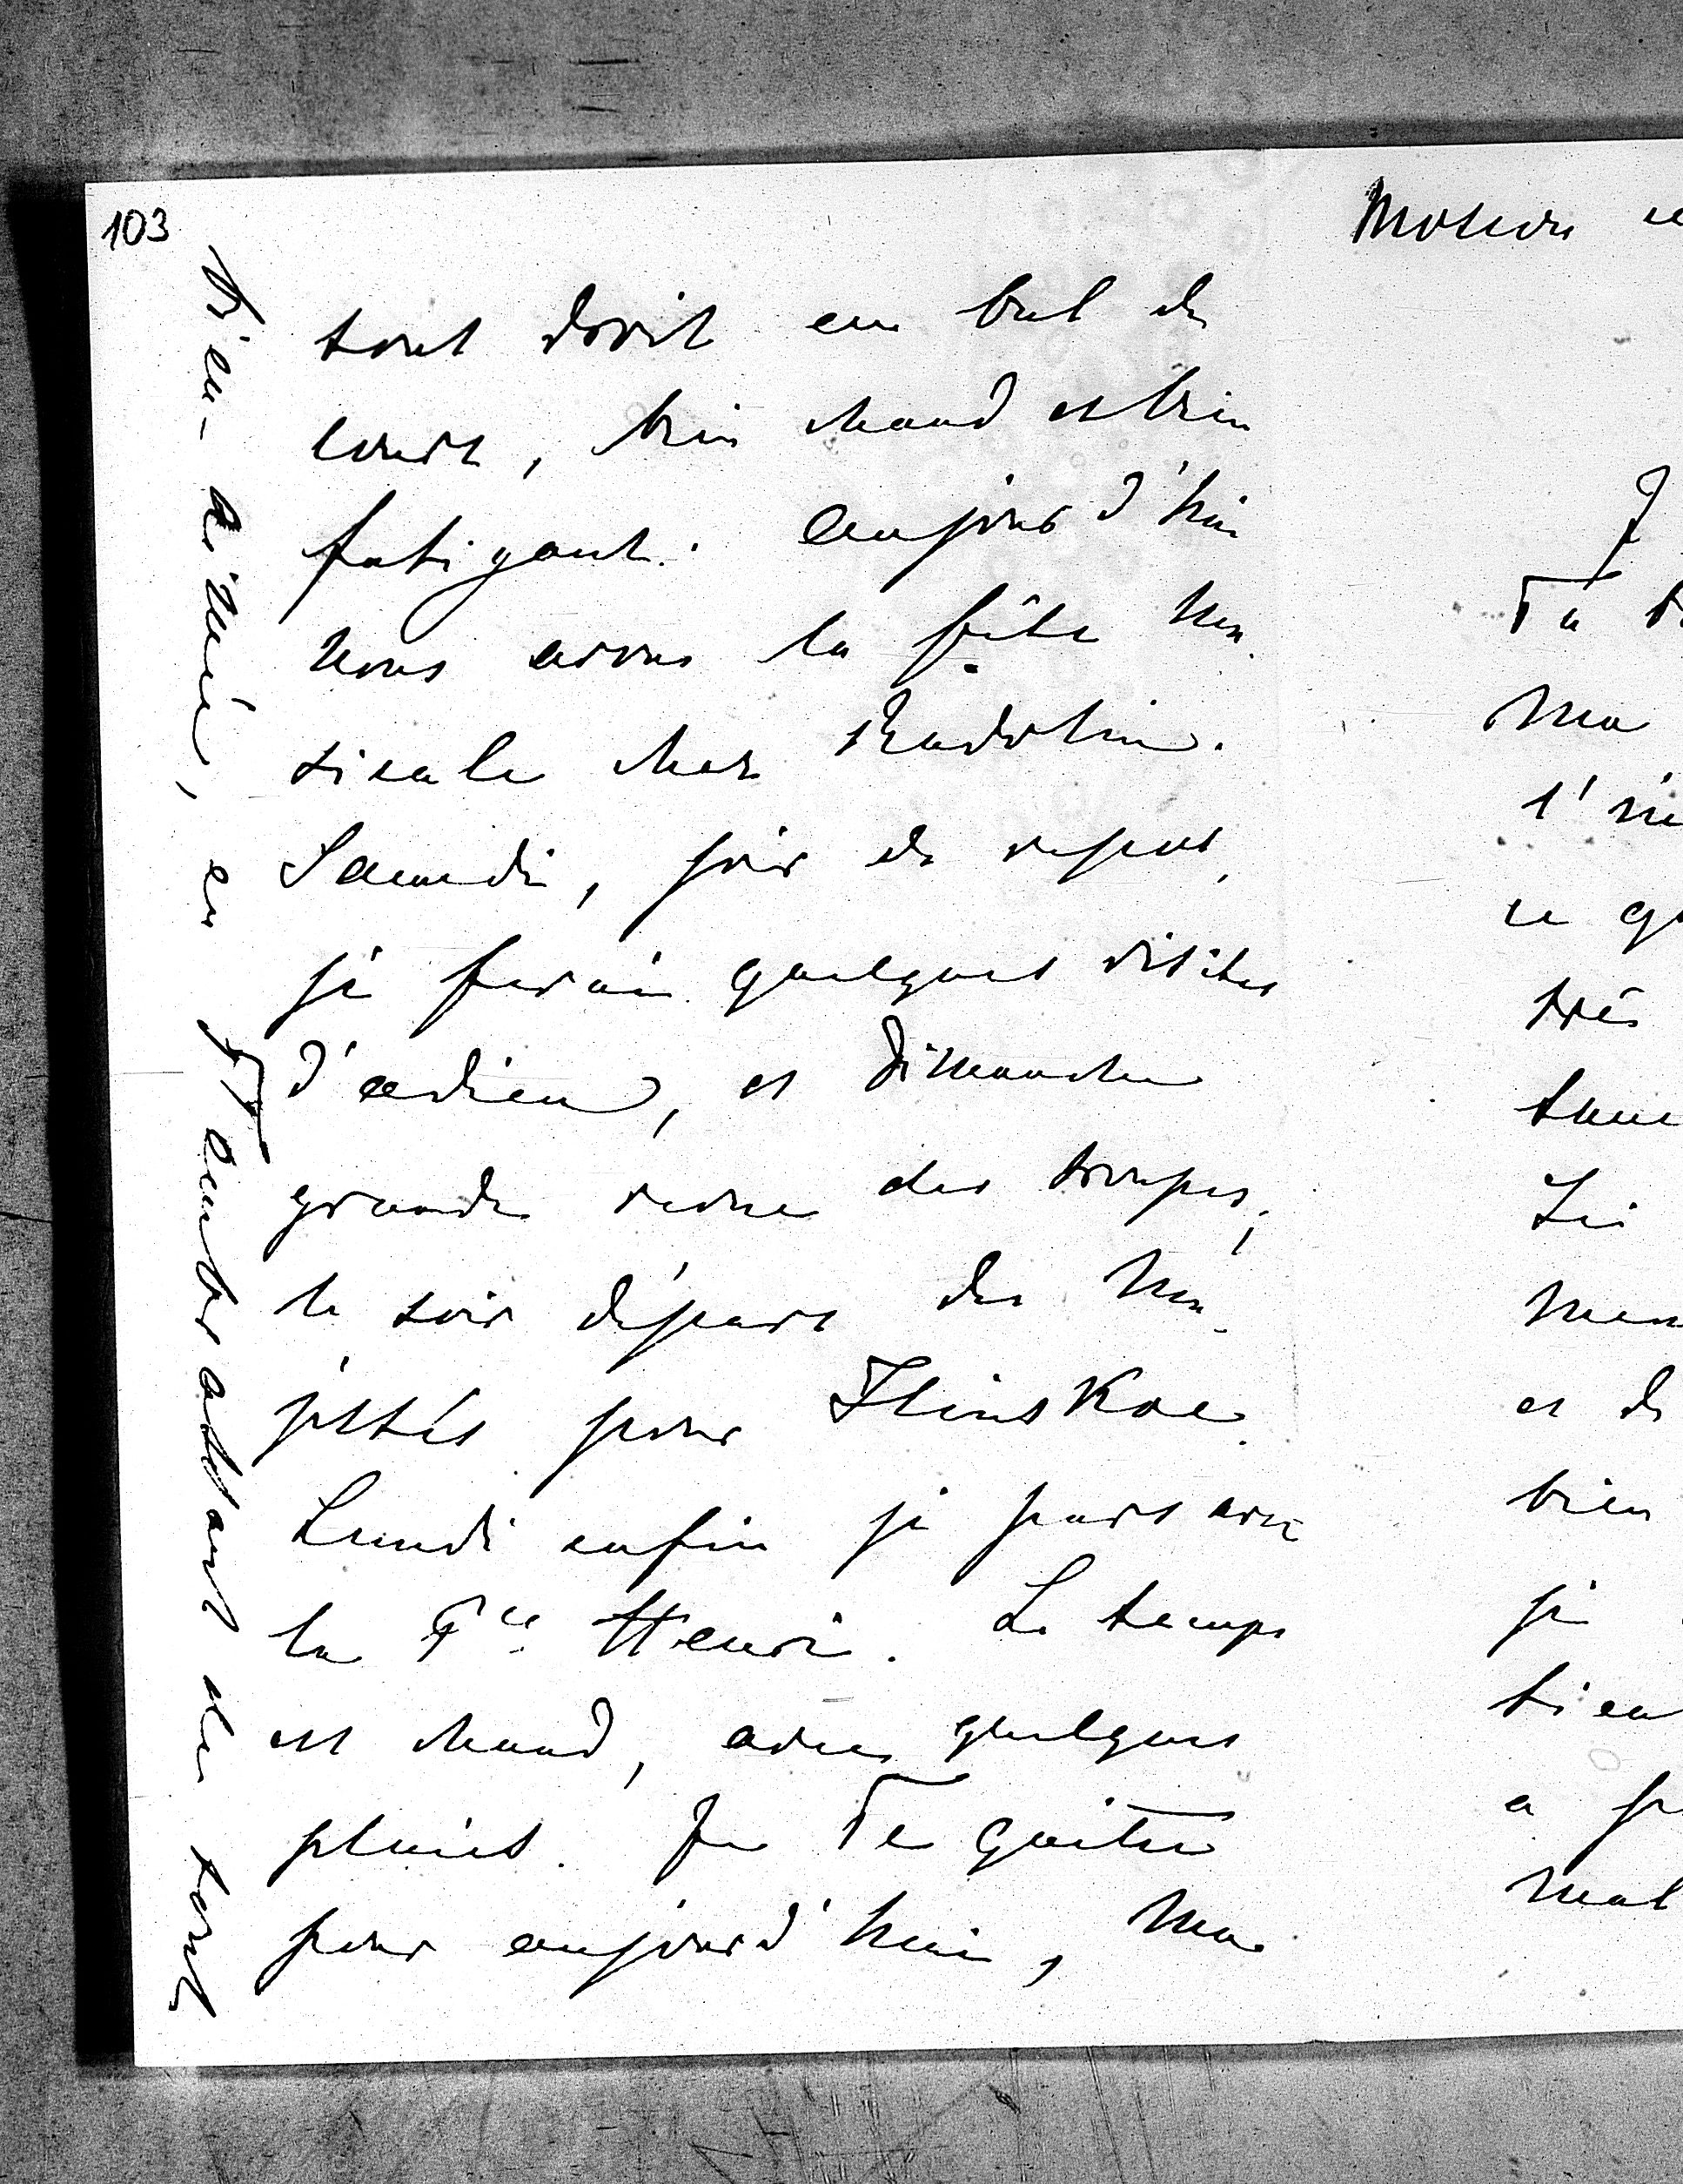 103
tout droit au bal de
cour, bien chaud et bien
fatigant. Aujourd'hui
nous avons la fête mu-
sicale chez Radolin.
Samedi, jour de repos,
je ferai quelques visites
d'adieu, et Dimanche
grande revue des troupes;
le soir départ des Ma-
jestés pour Ilinskoe.
Lundi enfin je pars avec
la Pce Henri. Le temps
est chaud, avec quelques
pluies. Je Te quitte
pour aujourd'hui, Ma
Bien-aimée, en T'embrassant de tout
Moscou
J
Tu
Ma
très
Lui
et de
bien
je
a
mal